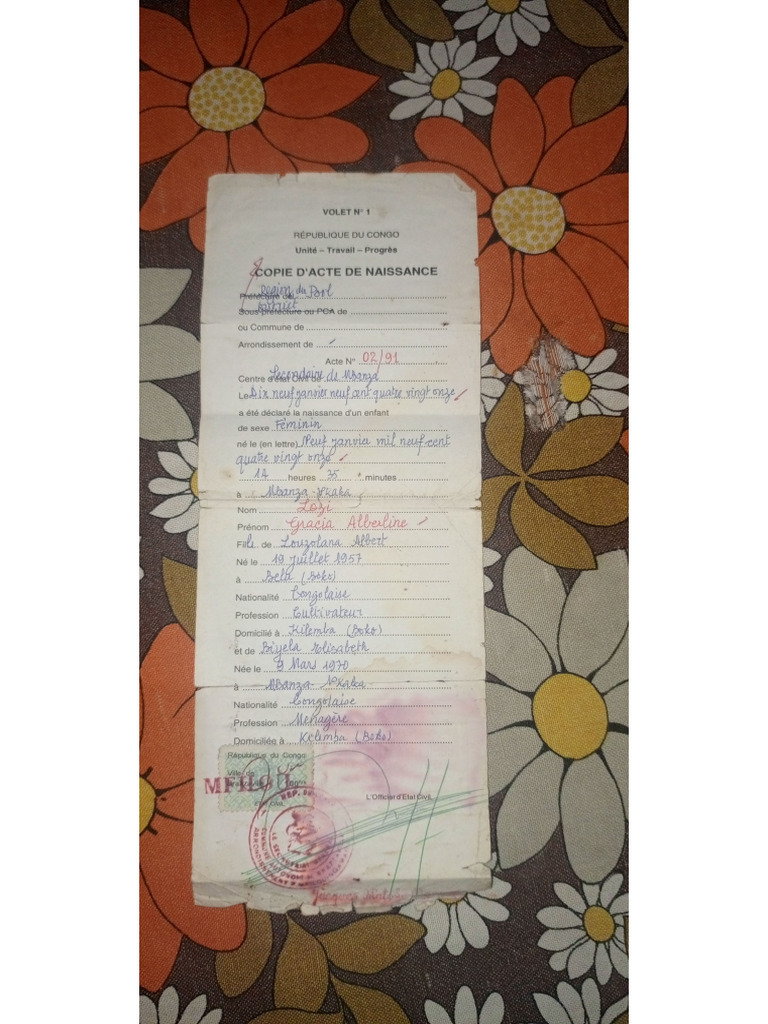 VOLET N° 1
RÉPUBLIQUE DU CONGO
Unité – Travail – Progrès
COPIE D'ACTE DE NAISSANCE
Région du Pool
Préfecture du
District
Sous-préfecture ou PCA de
ou Commune de
Arrondissement de
Acte N° 02/91
Centre d'état Civil de Secondaire de Mbanza
Le Dix neuf janvier neuf cent quatre vingt onze
a été déclaré la naissance d'un enfant
de sexe Féminin
né le (en lettre) Neuf janvier mil neuf cent
quatre vingt onze
12 heures 35 minutes
à Mbanza-Nkaka
Nom Lozi
Prénom Gracia Alberline
Fille de Louzolana Albert
Né le 19 juillet 1957
à Bela (Boko)
Nationalité Congolaise
Profession Cultivateur
Domicilié à Kilemba (Boko)
et de Biyela Elisabeth
Née le 9 Mars 1970
à Mbanza Nkaka
Nationalité Congolaise
Profession Ménagère
Domiciliée à Kelemba (Boko)
République du Congo
Ville de
L'Officier d'Etat Civil,
REP. DU
Jacques